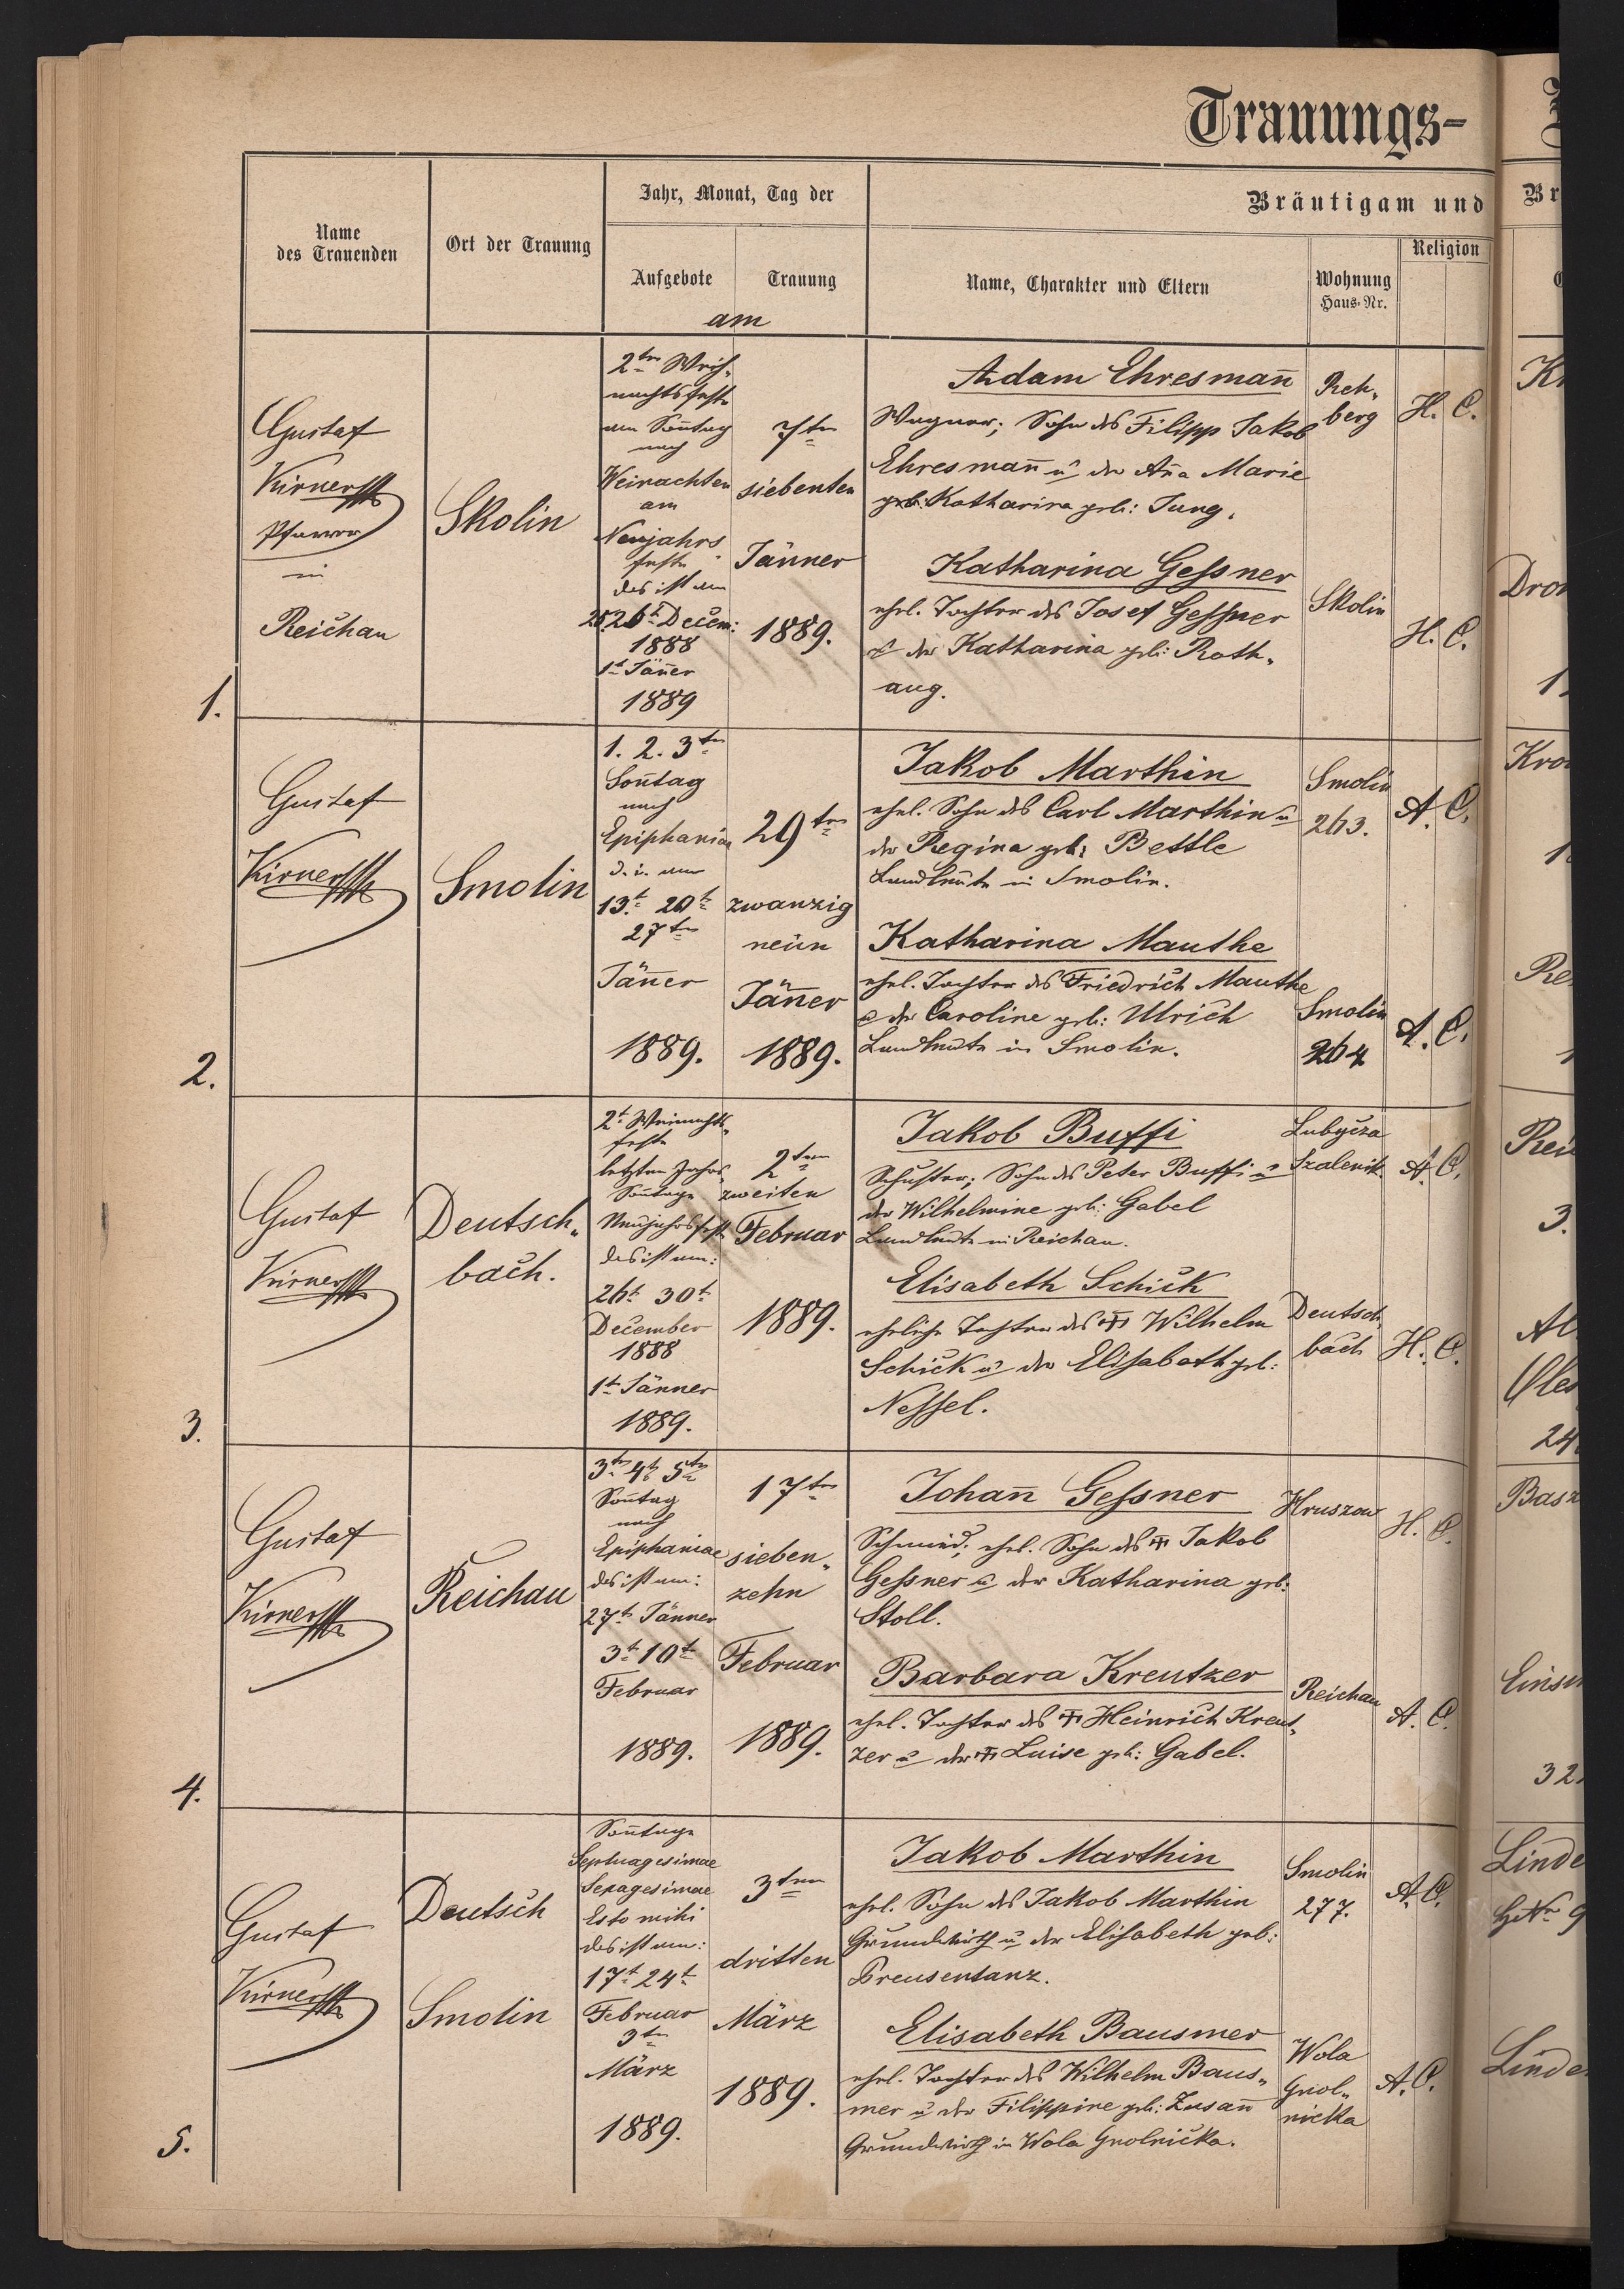 Trauungs-
Name
des Trauenden
Ort der Trauung
Jahr, Monat, Tag der
Aufgebote
Trauung
am
Bräutigam und
Name, Charakter und Eltern
Wohnung
Haus-Nr.
Religion
1.
Gustaf
Kirner
Pfarrer
in
Reichau
Skolin
2ten Weih-
nachtsfeste
am Soñtag
nach
Weinachten
am
Neujahrs
feste
das ist am
26t Decem:
1888
1t Jäñer
1889
7ten
siebenten
Jänner
1889.
Adam Ehresmañ
Wagner; Sohn des Filipp Jakob
Ehresmañ u der Aña Marie
Katharina geb: Jung.
Reh-
berg
H. C.
Katharina Gessner
ehel. Tochter des Josef Gessner
u der Katharina geb: Roth-
aug.
Skolin
H. C.
2.
Gustaf
Kirner
Smolin
1. 2. 3ten
Soñtag
nach
Epiphanias
d. i. am
13t 20t
27ten
Jäñer
1889.
29ten
zwanzig
neun
Jäñer
1889.
Jakob Marthin
ehel. Sohn des Carl Marthin u
der Regina geb: Bettle
Landleute in Smolin.
Smolin
263.
A. C.
Katharina Mauthe
ehel. Tochter des Friedrich Mauthe
u der Caroline geb: Ulrich
Landleute in Smolin.
Smolin
264
A. C.
3.
Gustaf
Kirner
Deutsch-
bach.
2t Weinachts-
feste
letzten Jahrs-
Soñtage
Neujahrsfest
das ist am:
26t 30t
December
1888
1t Jänner
1889.
2ten
zweiten
Februar
1889.
Jakob Buffi
Schuster; Sohn des Peter Buffi u
der Wilhelmine geb: Gabel
Landleute in Reichau.
Lubycza
A. C.
Elisabeth Schick
eheliche Tochter des Wilhelm
Schick u der Elisabeth geb:
Nessel.
Deutsch-
bach
H. C.
4.
Gustaf
Kirner
Reichau
3t 4t 5t
Soñtag
nach
Epiphaniae
das ist am:
27t Jänner
3t 10t
Februar
1889.
17ten
sieben-
zehn
Februar
1889.
Johañ Gessner
Schmied; ehel. Sohn des Jakob
Gessner u der Katharina geb:
Stoll.
Hruszow
H. C.
Barbara Kreutzer
ehel. Tochter des Heinrich Kreut-
zer u der Luise geb: Gabel.
Reichau
A. C.
5.
Gustaf
Kirner
Deutsch
Smolin
Soñtage
Septuagesimae
Sexagesimae
Esto mihi
das ist am:
17t 24t
Februar
3ten
März
1889.
3ten
dritten
März
1889.
Jakob Marthin
ehel. Sohn des Jakob Marthin
Grundwirth u der Elisabeth geb:
Preusentanz.
Smolin
277.
A. C.
Elisabeth Bausmer
ehel. Tochter des Wilhelm Baus-
mer u der Filippine geb: Zusañ
Grundwirth in Wola Gnolnicka.
Wola
Gnol-
nicka
A. C.